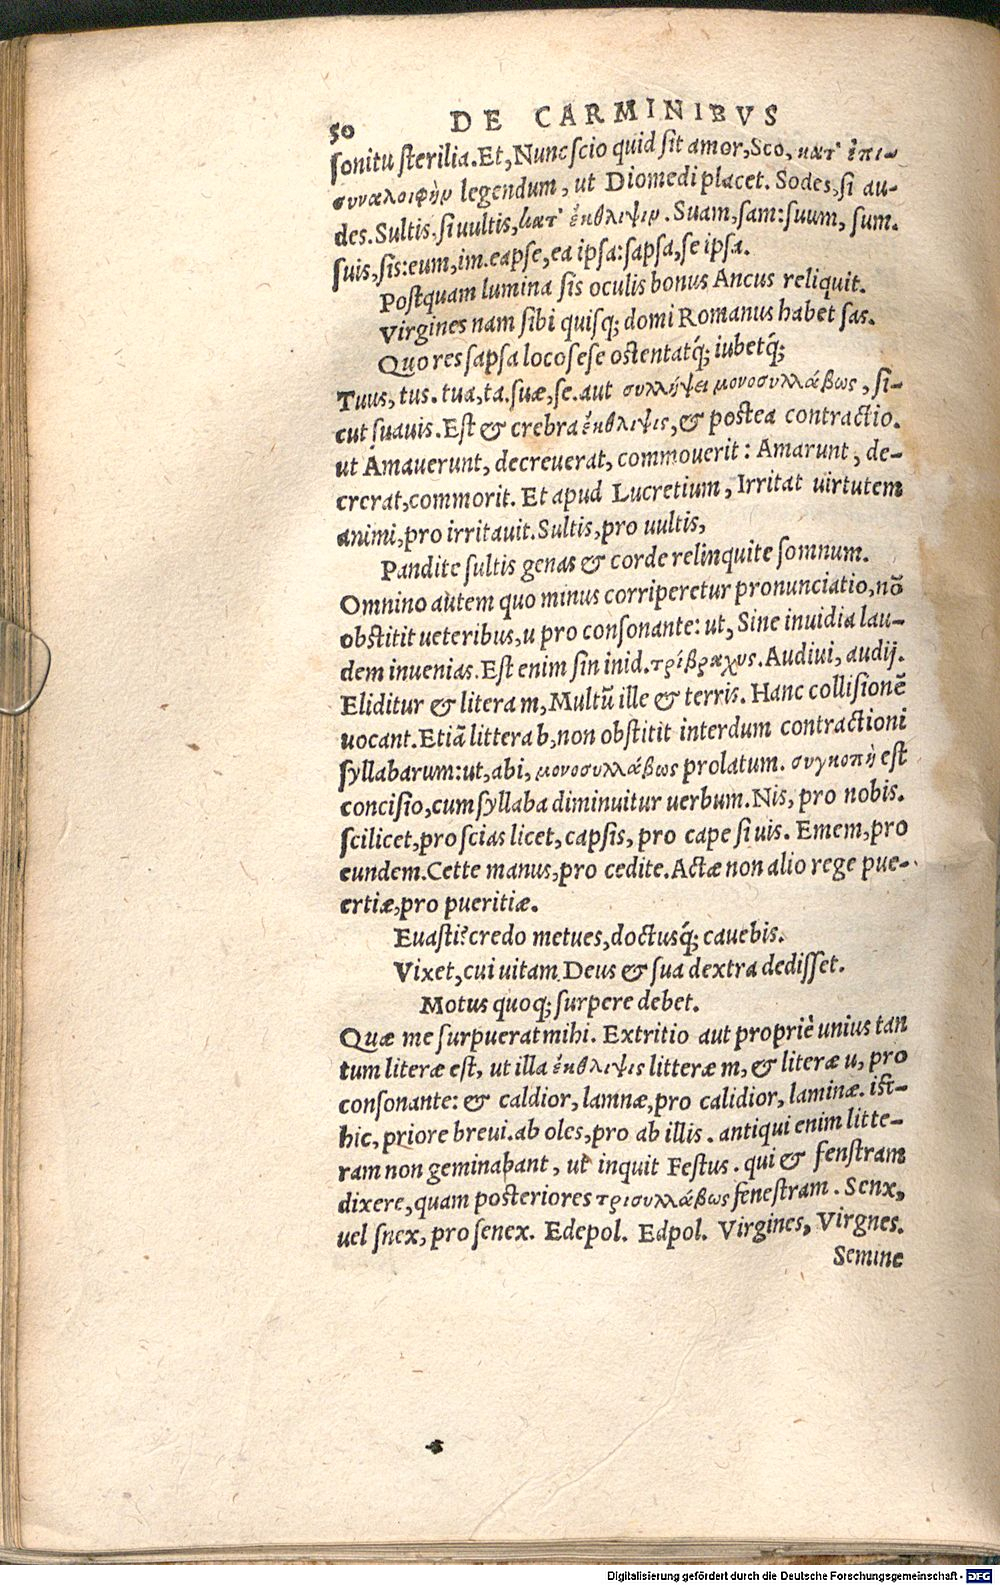 50 DE CARMINIBVS
sonitu sterilia. Et, Nunc scio quid sit amor, Sco, κατ' ἐπι-
συναλοιφὴν legendum, ut Diomedi placet. Sodes, si au-
des. Sultis. si uultis, κατ' ἔκθλιψιν. Suam, sam: suum, sum.
suis, sis: eum, im. eapse, ea ipsa: sapsa, se ipsa.
Postquam lumina sis oculis bonus Ancus reliquit.
Virgines nam sibi quisq; domi Romanus habet sas.
Quo res sapsa loco sese ostentatq́; iubetq́;
Tuus, tus. tua, ta. suæ, se. aut συλλήψει μονοσυλλάβως, si-
cut suauis. Est & crebra ἔκθλιψις, & postea contractio.
ut Amauerunt, decreuerat, commouerit: Amarunt, de-
crerat, commorit. Et apud Lucretium, Irritat uirtutem
animi, pro irritauit. Sultis, pro uultis,
Pandite sultis genas & corde relinquite somnum.
Omnino autem quo minus corriperetur pronunciatio, nō
obstitit ueteribus, u pro consonante: ut, Sine inuidia lau-
dem inuenias. Est enim sin inid. τρίβραχυς. Audiui, audij.
Eliditur & litera m, Multū ille & terris. Hanc collisionē
uocant. Etiā littera b, non obstitit interdum contractioni
syllabarum: ut, abi, μονοσυλλάβως prolatum. συγκοπὴ est
concisio, cum syllaba diminuitur uerbum. Nis, pro nobis.
scilicet, pro scias licet, capsis, pro cape si uis. Emem, pro
eundem. Cette manus, pro cedite. Actæ non alio rege pue-
ertiæ, pro pueritiæ.
Euasti? credo metues, doctusq́; cauebis.
Vixet, cui uitam Deus & sua dextra dedisset.
Motus quoq; surpere debet.
Quæ me surpuerat mihi. Extritio aut propriè unius tan
tum literæ est, ut illa ἔκθλιψις litteræ m, & literæ u, pro
consonante: & caldior, lamnæ, pro calidior, laminæ. ist-
hic, priore breui. ab oles, pro ab illis. antiqui enim litte-
ram non geminabant, ut inquit Festus. qui & fenstram
dixere, quam posteriores τρισυλλάβως fenestram. Senx,
uel snex, pro senex. Edepol. Edpol. Virgines, Virgnes.
Semine
Digitalisierung gefördert durch die Deutsche Forschungsgemeinschaft - DFG